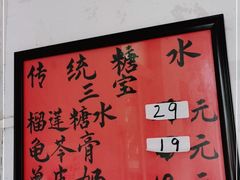 传统糖水
三宝
榴莲糖水 29元
龟苓膏 19元